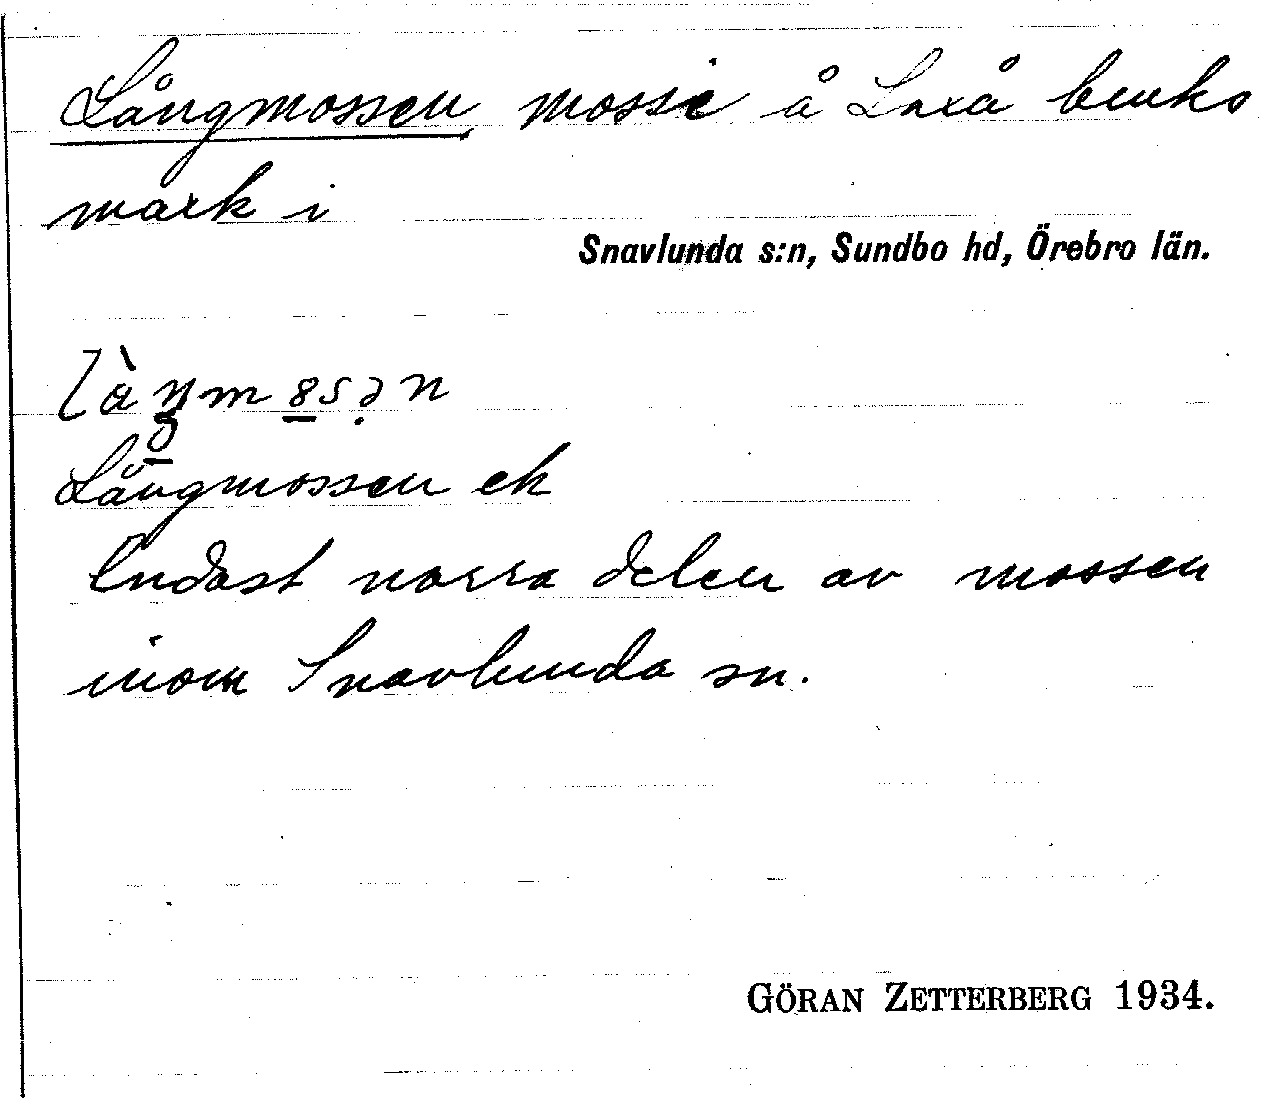 Långmossen mosse å Laxå bruks
mark i
Snavlunda s:n, Sundbo hd, Örebro län.
Långmossen ek
Endast norra delen av mossen
inom Snavlunda sn.
GÖRAN ZETTERBERG 1934.